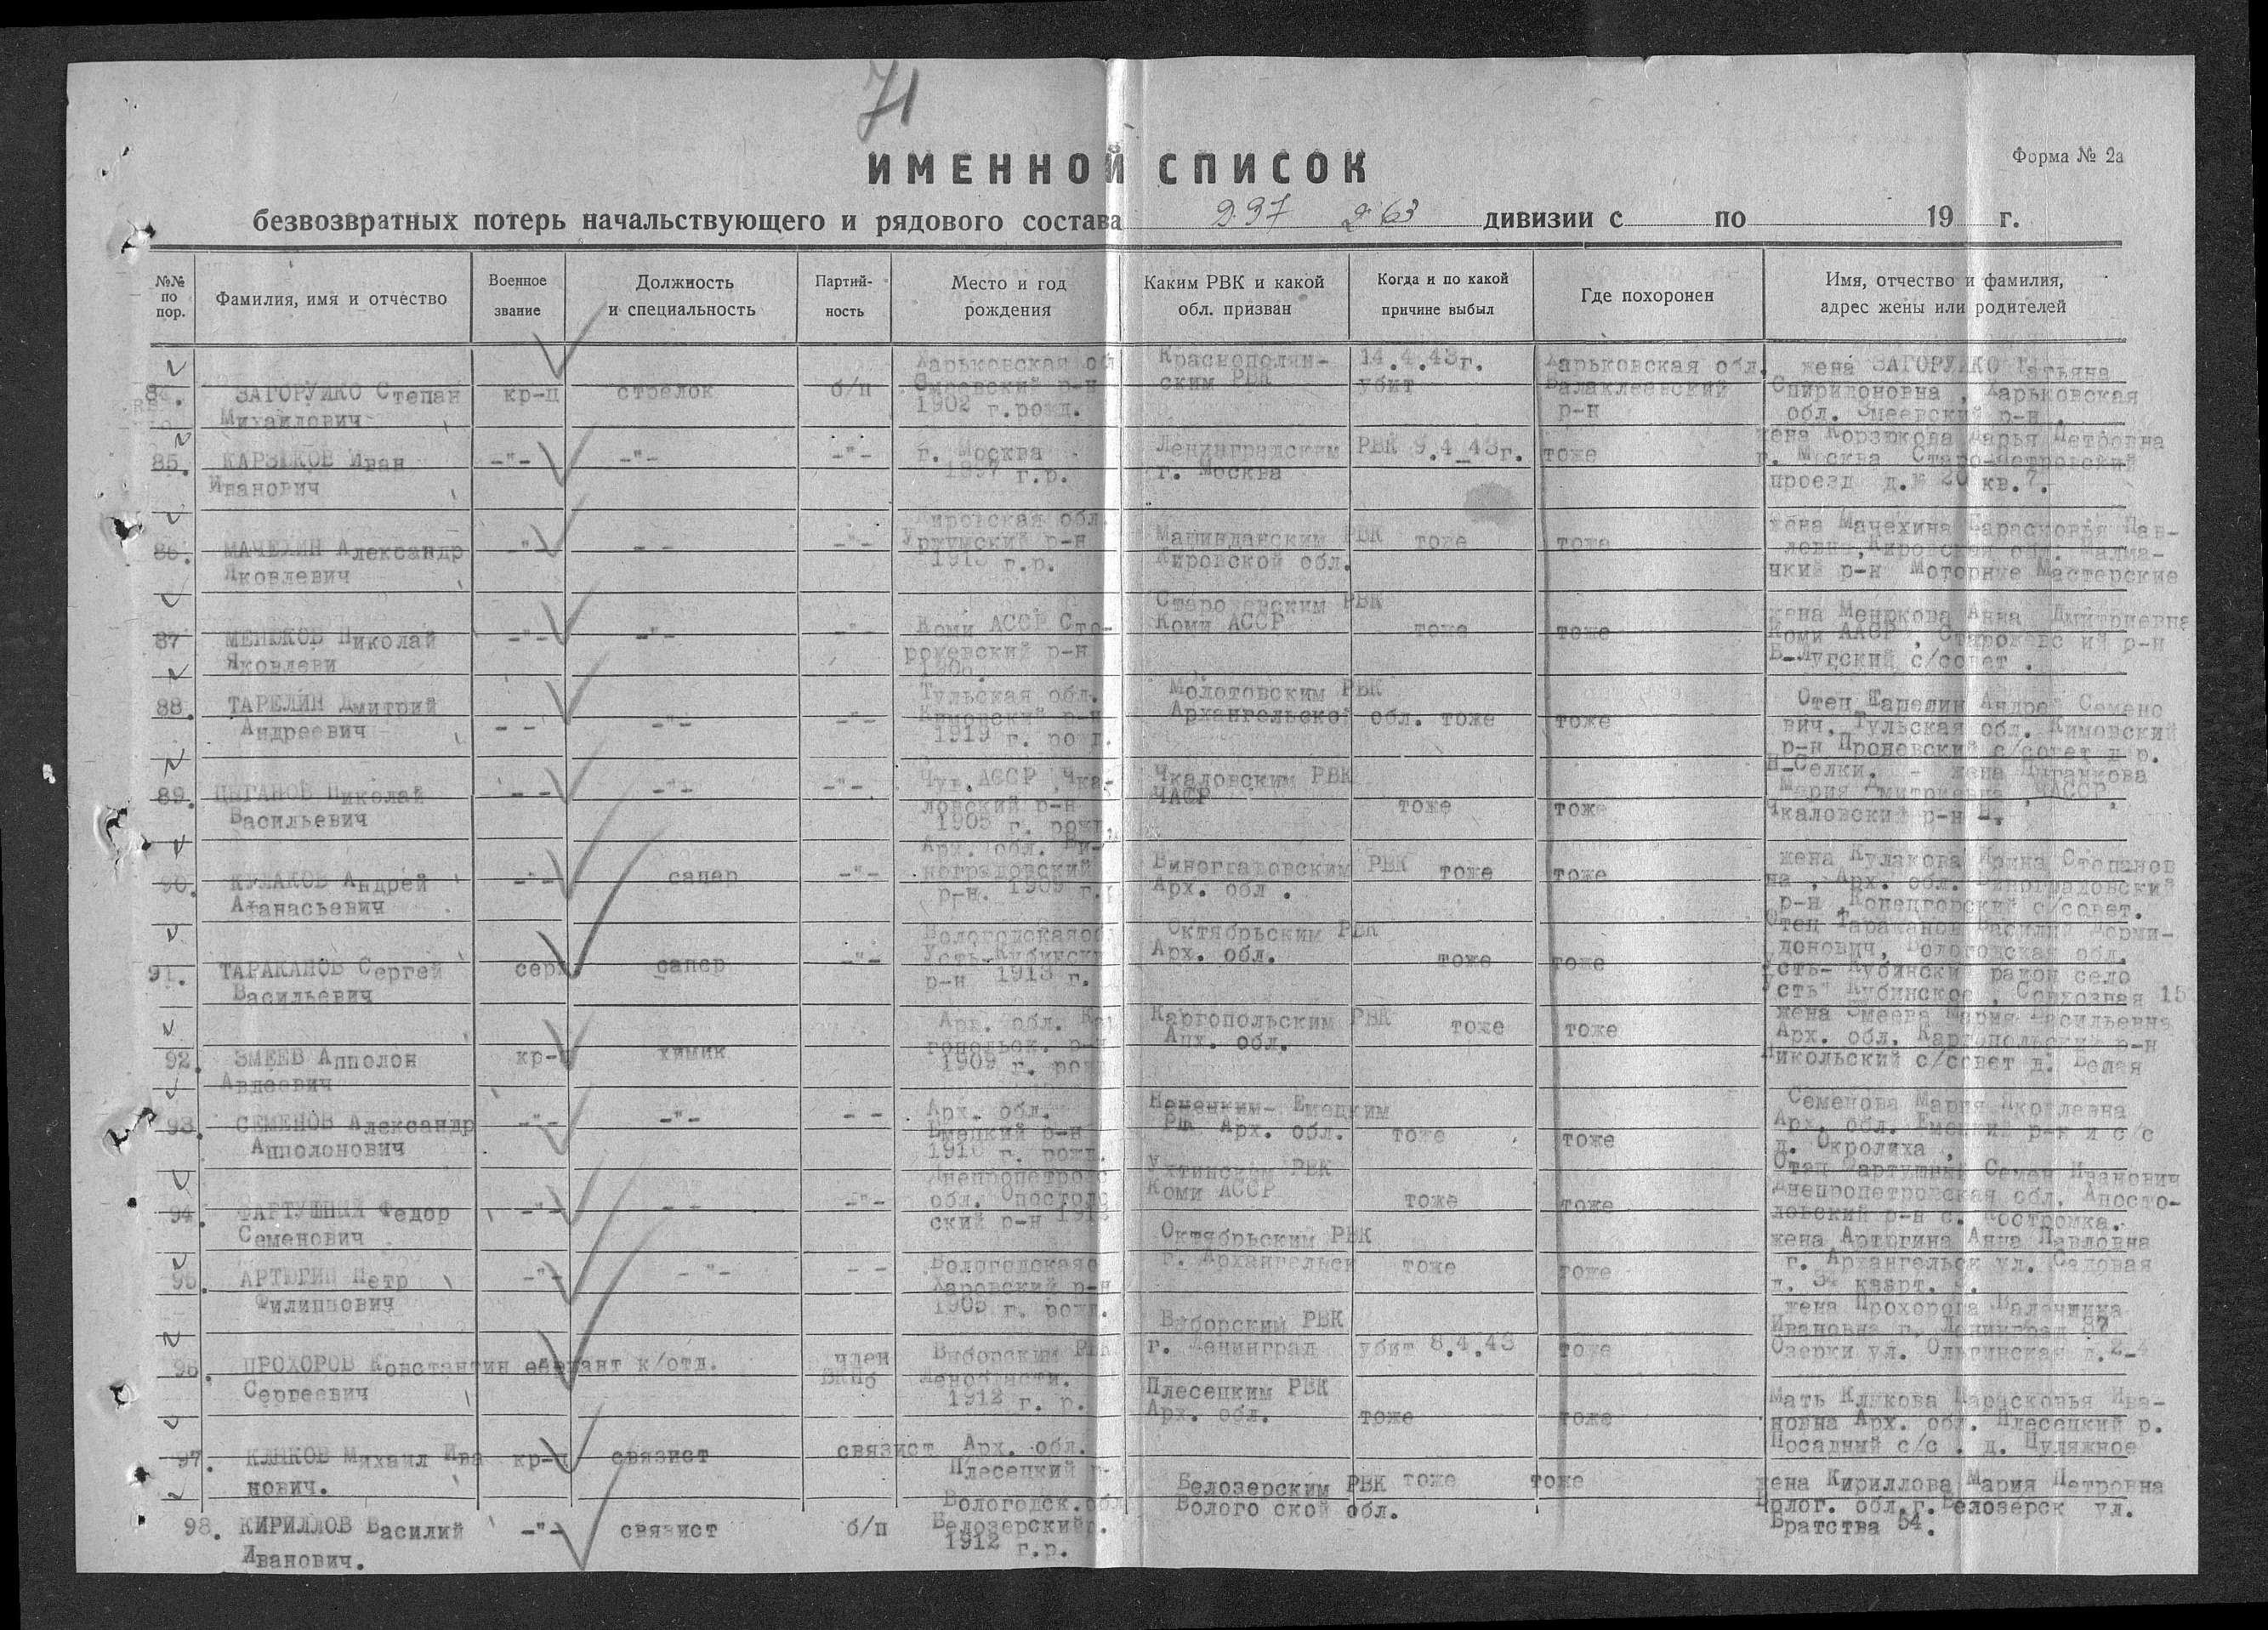 71
ИМЕННОЙ СПИСОК
Форма № 2а
безвозвратных потерь начальствующего и рядового состава 297 263 дивизии с по 19 г.
№№ по пор.
Фамилия, имя и отчество
Военное звание
Должность и специальность
Партий-ность
Место и год рождения
Каким РВК и какой обл. призван
Когда и по какой причине выбыл
Где похоронен
Имя, отчество и фамилия, адрес жены или родителей
84. ЗАГОРУЙКО Степан Михайлович кр-ц стрелок б/п Харьковская об Змеевский р-н 1902 г.рожд. Краснополян-ским РВК 14.4.43г. убит Харьковская обл. Балаклеевский р-н жена ЗАГОРУЙКО Татьяна Спиридоновна, Харьковская обл. Змеевский р-н.
85. КАРЗЮКОВ Иван Иванович -"- -"- -"- г. Москва 1897 г.р. Ленинградским РВК г. Москва 9.4_43г. тоже жена Корзюкова Дарья Петровна г. Москва Старо-Петровский проезд д.№ 20 кв.7.
86. МАЧЕХИН Александр Яковлевич -"- - - -"- Кировская обл. Уржумский р-н 1913 г.р. РВК Кировской обл. тоже тоже жена Мачехина Парасковья Пав-ловна, Кировская обл. р-н Моторные Мастерские
87 МЕНЮКОВ Николай Яковлеви -"- -"- -"- Коми АССР Сто-рожевский р-н 1906. Старожевским РВК Коми АССР тоже тоже жена Менюкова Анна Дмитриевна Коми ААСР, Старожевс ий р-н с/совет.
88. ТАРЕЛИН Дмитрий Андреевич - - -"- -"- Тульская обл. Кимовский р-н 1919 г. рожд. Молотовским РВК Архангельской обл. тоже тоже Отец Андрей Семено вич, Тульская обл. Кимовский р-н Проневский с/совет д р. Н-Селки.
89. ЦЫГАНОВ Николай Васильевич - - -"- -"- Чув. АССР Чка-ловский р-н 1905 г. рожд. Чкаловским РВК ЧАСР тоже тоже - жена Цыганкова Мария Дмитриевна, ЧАССР, Чкаловский р-н
90. КУЛАКОВ Андрей Афанасьевич -"- сапер -"- Арх. обл. Ви-ноградовский р-н. 1909 г. Виноградовским РВК Арх. обл. тоже тоже жена Кулакова Ирина Степанов на, Арх. обл. Виноградовский р-н Конецгорский с/совет.
91. ТАРАКАНОВ Сергей Васильевич сер сапер -"- Вологодскаяоб Усть-Кубински р-н 1913 г. Октябрьским РВК Арх. обл. тоже тоже Отец Тараканов Василий Дорми-донович, Вологодская обл. Усть-Кубински район село Усть Кубинское, Совхозная 15
92. ЗМЕЕВ Апполон Авдеевич кр- химик Арх. обл. Кар гопольск. р-н 1909 г. рожд Каргопольским РВК Арх. обл. тоже тоже жена Змеева Мария Васильевна Арх. обл. Каргопольский р-н Никольский с/совет д. Белая
93. СЕМЕНОВ Александр Апполонович -"- -"- - - Арх. обл. Емецкий р-н 1910 г. рожд. Емецким РВК Арх. обл. тоже тоже Семенова Мария Яковлевна Арх. обл. Емецкий р-н и с/с д. Окролиха,
94. ФАРТУШНЫЙ Федор Семенович -"- - - -"- Днепропетровс обл. Опостоло ский р-н 1912 Ухтинским РВК Коми АССР тоже тоже Отец Фартушный Семен Иванович Днепропетровская обл. Апосто-ловский р-н с. Костромка.
95. АРТЮГИН Петр Филиппович -"- -"- - - Вологодскаяо Харовский р-н 1905 г. рожд. Октябрьским РВК г. Архангельск тоже тоже жена Артюгина Анна Павловна г. Архангельск ул. Садовая д. 34 кварт.
96. ПРОХОРОВ Константин Сергеевич к/отд. член ВКПб Выборским РВК Ленобласти. 1912 г. р. Выборским РВК г. Ленинград убит 8.4.43 тоже жена Прохорова Валентина Ивановна г. Ленинград Озерки ул. Ольгинская д.2-4
97. КЛЮКОВ Михаил Ива нович. кр-ц связист связист Арх. обл. Плесецкий р- Плесецким РВК Арх. обл. тоже тоже Мать Клюкова Парасковья Ива-новна Арх. обл. Плесецкий р. Посадный с/с. д.
98. КИРИЛЛОВ Василий Иванович. -"- связист б/п Вологодск.обл Белозерский р. 1912 г.р. Белозерским РВК Волого ской обл. тоже тоже жена Кириллова Мария Петровна Волог. обл.г.Белозерск ул. Братства 54.